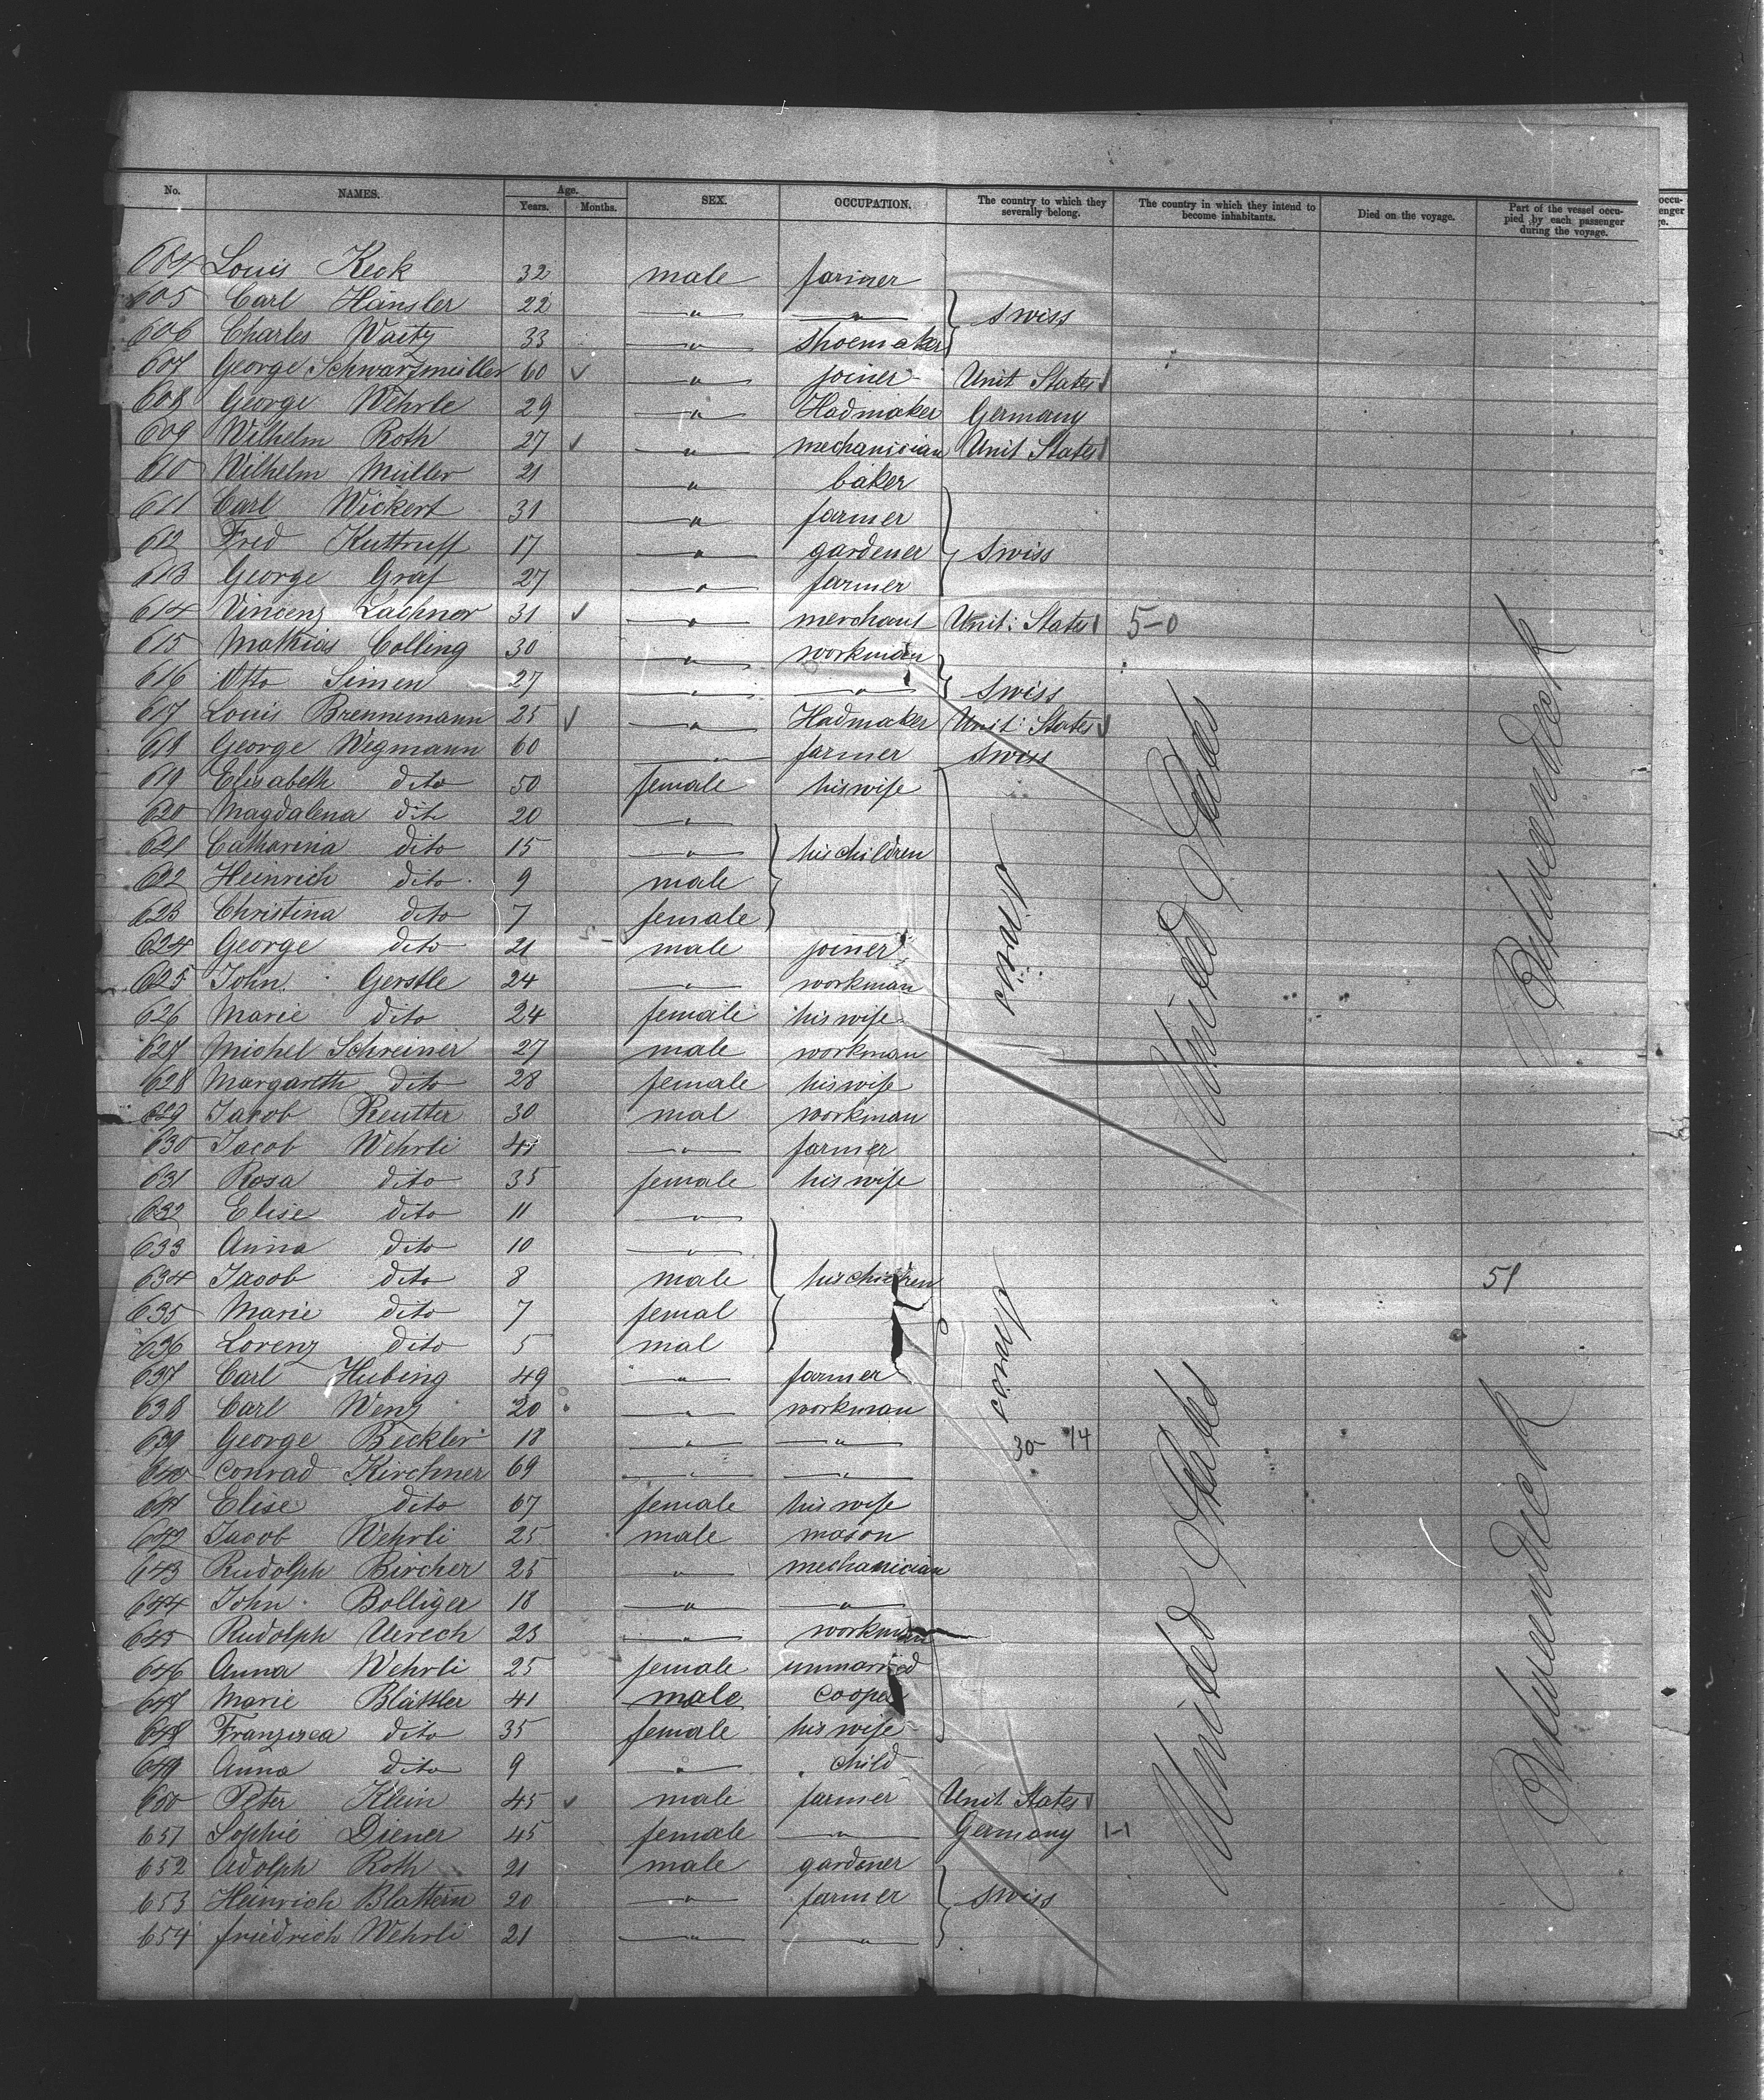 No. NAMES. Age. Years. Months. SEX. OCCUPATION. The country to which they severally belong. The country in which they intend to become inhabitants. Died on the voyage. Part of the vessel occupied by each passenger during the voyage.
604 Louis Keck 32 male farmer
605 Carl Hänsler 22 " " swiss
606 Charles Waitz 33 " shoemaker
607 George Schwarzmüller 60 ✓ " joiner Unit States
608 George Wehrle 29 " Hadmaker Germany
609 Wilhelm Roth 27 ✓ " mechanician Unit States
610 Wilhelm Müller 21 " baker
611 Carl Wickert 31 " farmer
612 Fred Kuttruff 17 " gardener swiss
613 George Graf 27 " farmer
614 Vincenz Lachner 31 ✓ " merchant Unit: States 5-0
615 Mathias Colling 30 " workman
616 Otto Simen 27 " " swiss
617 Louis Brennemann 25 ✓ " Hadmaker Unit: States
618 George Wegmann 60 " farmer swiss
619 Elisabeth dito 50 female his wife
620 Magdalena dito 20 "
621 Catharina dito 15 " his children
622 Heinrich dito 9 male
623 Christina dito 7 female
624 George dito 21 male joiner
625 John Gerstle 24 " workman
626 Marie dito 24 female his wife
627 Michel Schreiner 27 male workman
628 Margareth dito 28 female his wife
629 Jacob Reutter 30 mal workman
630 Jacob Wehrli 41 " farmer
631 Rosa dito 35 female his wife
632 Elise dito 11 "
633 Anna dito 10 "
634 Jacob dito 8 male his children 51
635 Marie dito 7 femal
636 Lorenz dito 5 mal
637 Carl Hubing 49 " farmer
638 Carl Wenz 20 " workman
639 George Beckler 18 " " 30 14
640 Conrad Kirchner 69 " "
641 Elise dito 67 female his wife
642 Jacob Wehrli 25 male mason
643 Rudolph Bircher 25 " mechanician
644 John Bolliger 18 " "
645 Rudolph Uerech 23 " workman
646 Anna Wehrli 25 female unmarried
647 Marie Blättler 41 male cooper
648 Franzisca dito 35 female his wife
649 Anna dito 9 " child
650 Peter Klein 45 ✓ male farmer Unit States
651 Sophie Diener 45 female " Germany 1-1
652 Adolph Roth 21 male gardener
653 Heinrich Blattein 20 " farmer swiss
654 friedrich Wehrli 21 " "
swiss
swiss
United States
United States
Betweendeck
Betweendeck